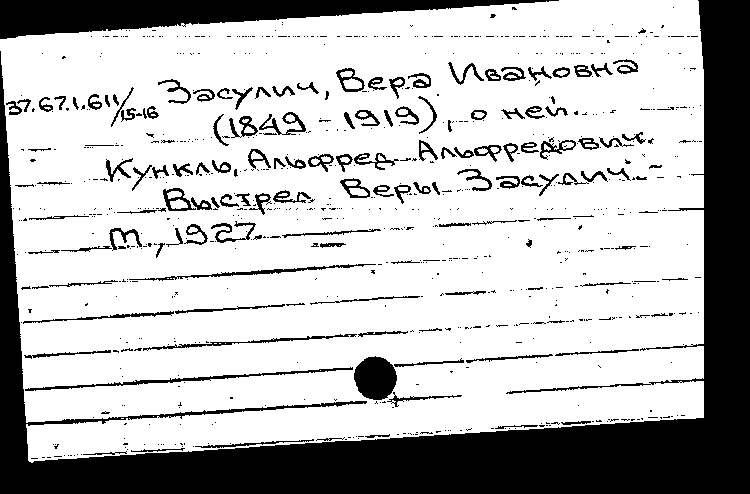 37.67.1.611/15-16 Засулич, Вера Ивановна
(1849 - 1919), о ней.
Кункль, Альфред Альфредович.
Выстрел Веры Засулич. -
М., 1927